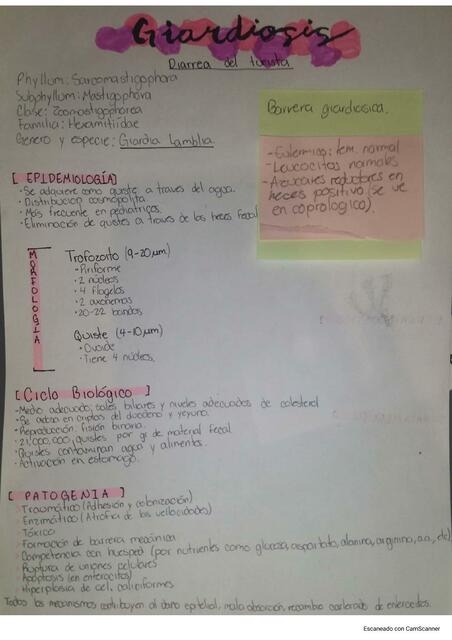 Giardiosis
Diarrea del turista
Phyllum: Sarcomastigophora
Subphyllum: Mastigophora
Clase: Zoomastigophorea
Familia: Hexamitiidae
Genero y especie: Giardia Lamblia
Barrera giardiosica.
- Eutermico: tem. normal
- Leucocitos normales
- Azucares reductores en
heces positivo (se ve
en coprologico).
[EPIDEMIOLOGÍA]
· Se adquiere como quiste a traves del agua.
· Distribucion cosmopolita
· Más frecuente en pediatricos.
· Eliminación de quistes a traves de las heces fecal
MORFOLOGIA
Trofozoito (9-20µm)
· Piriforme
· 2 núcleos
· 4 flagelos
· 2 axonemas
· 20-22 bandas
Quiste (4-10µm)
· Ovoide
· Tiene 4 núcleos.
[Ciclo Biológico]
- Medio adecuado; sales biliares y niveles adecuados de colesterol
- Se adosa en criptas del duodeno y yeyuno.
- Reproducción: fisión binaria.
· 21,000,000 quistes por gr de material fecal
- Quistes contaminan agua y alimentos.
- Activación en estomago.
[PATOGENIA]
› Traumático (Adhesión y colonización)
› Enzimático (Atrofia de las vellocidades)
› Tóxico
› Formación de barrera mecánica
› Competencia con huesped (por nutrientes como glucosa, aspartato, alanina, arginina, a.a., etc)
› Ruptura de uniones celulares
› Apoptosis (en enterocitos)
› Hiperplasia de cel. caliciformes
Todos los mecanismos contribuyen al daño epitelial, mala absorción, recambio acelerado de enterocitos.
Escaneado con CamScanner